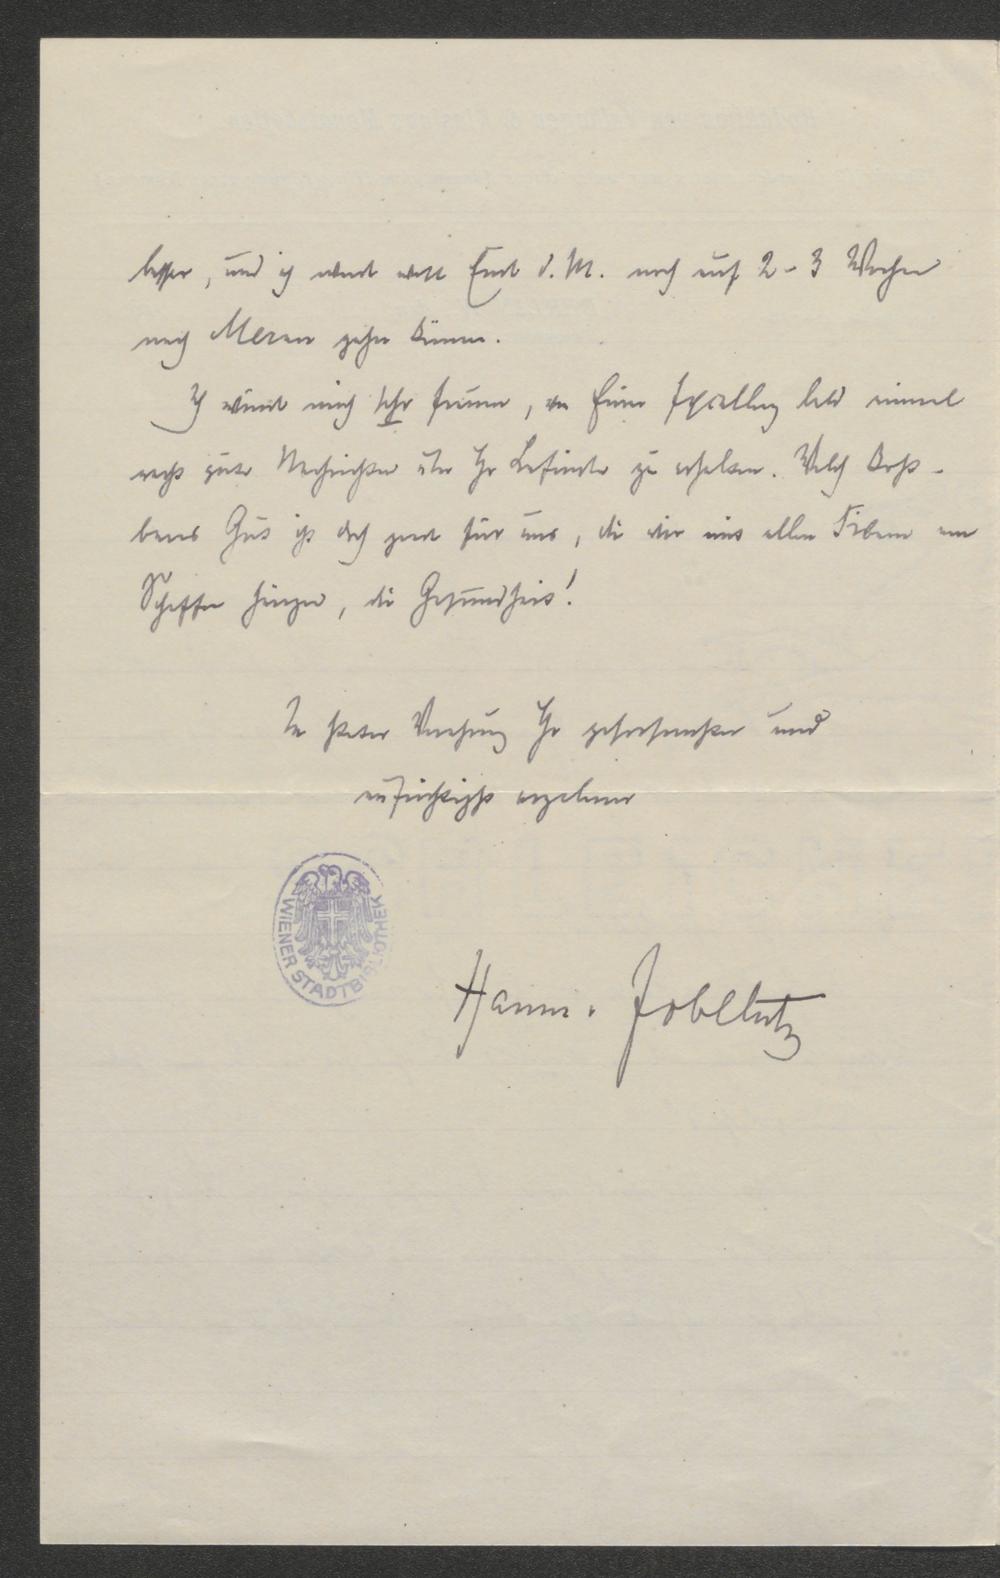 besser, und ich werde wohl Ende d. M. noch auf 2-3 Wochen
nach Meran gehen können.
Ich würde mich sehr freuen, von Euer Exzellenz bald einmal
recht gute Nachrichten über Ihr Befinden zu erhalten. Welch kost-
bares Gut ist doch grade für uns, die wir mit allen Fibern am
Schaffen hängen, die Gesundheit!
In steter Verehrung Ihr gehorsamster und
aufrichtigst ergebener
Hanns v. Zobeltitz
WIENER STADTBIBLIOTHEK